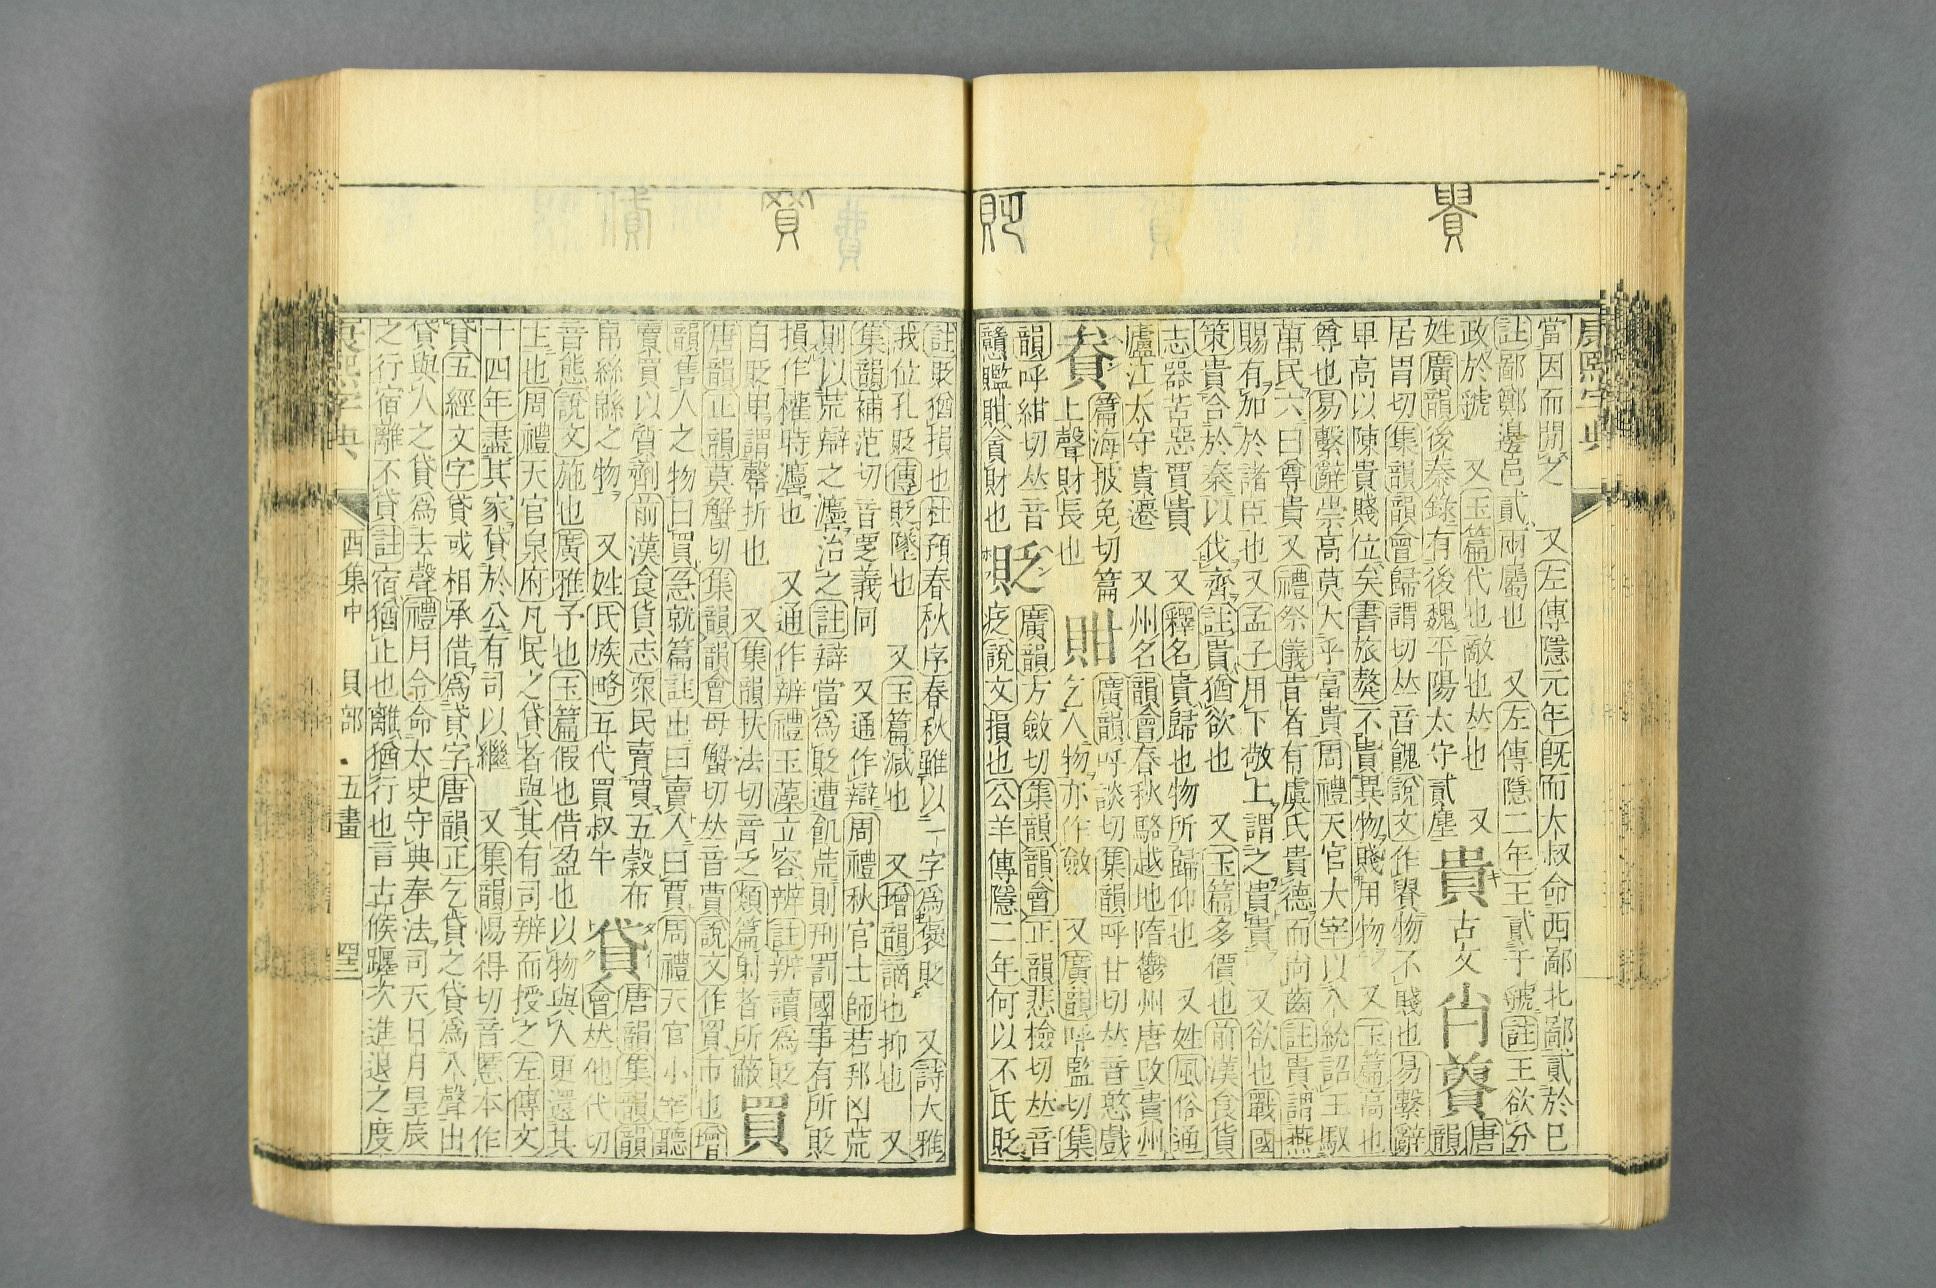 䝿
康熙字典
當因而開之 又左傳隱元年旣而大叔命西鄙北鄙貳於已
註鄙鄭邊邑貳兩屬也 又左傳隱二年王貳于虢註王欲分
政於虢 又玉篇代也敵也𠀤也 又
姓廣韻後秦錄有後魏平陽太守貳塵
貴 古文 唐韻
居胃切集韻韻會歸謂切𠀤音餽說文作䝿物不賤也易繫辭
卑高以陳貴賤位矣書旅獒不貴異物賤用物 又玉篇高也
尊也易繫辭崇高莫大乎富貴周禮天官大宰以八統詔王馭
萬民六曰尊貴又禮祭儀昔者有虞氏貴德而尚齒註貴謂燕
賜有加於諸臣也又孟子用下敬上謂之貴貴 又欲也戰國
策貴合於秦以伐齊註貴猶欲也 又玉篇多價也前漢食貨
志器苦惡賈貴 又釋名貴歸也物所歸仰也 又姓風俗通
廬江太守貴遷 又州名韻會春秋駱越地隋鬱州唐改貴州
篇海披免切篇
上聲財長也
廣韻呼談切集韻呼甘切𠀤音憨戲
乞人物亦作歛 又廣韻呼監切集
韻呼紺切𠀤音
貪財也
貶
廣韻方斂切集韻韻會正韻悲檢切𠀤音
窆說文損也公羊傳隱二年何以不氏貶
註貶猶損也杜預春秋序春秋雖以一字爲褒貶 又詩大雅
我位孔貶傳貶墜也 又玉篇減也 又增韻謫也抑也 又
集韻補范切音㚇義同 又通作辯周禮秋官士師若邦凶荒
則以荒辯之灋治之註辯當爲貶遭飢荒則刑罰國事有所貶
損作權時灋也 又通作辨禮玉藻立容辨註辨讀爲貶
自貶卑謂磬折也 又集韻扶法切音乏類篇射者所蔽
買
唐韻正韻莫蟹切集韻韻會母蟹切𠀤音蕒說文作買市也增
韻售人之物曰買急就篇註出曰賣入曰買周禮天官小宰聽
賣買以質劑前漢食貨志衆民賣買五穀布
帛絲緜之物 又姓氏族略五代買叔午
貸
唐韻集韻韻
會𠀤他代切
音態說文施也廣雅予也玉篇假也借盈也以物與人更還其
主也周禮天官泉府凡民之貸者與其有司辨而授之左傳文
十四年盡其家貸於公有司以繼 又集韻惕得切音慝本作
貣五經文字貸或相承借爲貣字唐韻正乞貸之貸爲入聲出
貸與人之貸爲去聲禮月令命太史守典奉法司天日月星辰
之行宿離不貸註宿猶止也離猶行也言占候躔次進退之度
康熙字典 酉集中 貝部 五畫